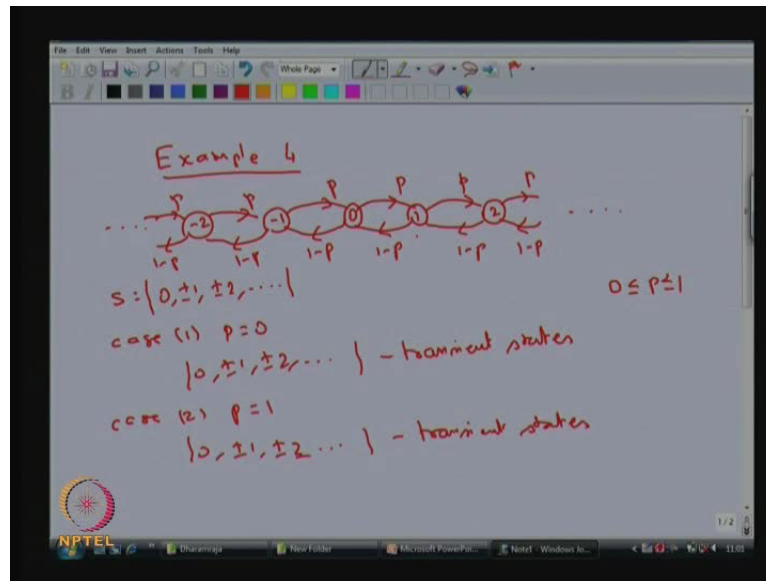 File Edit View Insert Actions Tools Help
Whole Page
B I
Example 4
p p p p p p
.... -2 -1 0 1 2 ....
1-p 1-p 1-p 1-p 1-p 1-p
S = { 0, ±1, ±2, .... }
0 ≤ p ≤ 1
case (1) p = 0
{ 0, ±1, ±2, ... } - transient states
case (2) p = 1
{ 0, ±1, ±2 ... } - transient states
1/2
NPTEL
Dharamraja New Folder Microsoft PowerPoi... Note1 - Windows Jo... 11:01